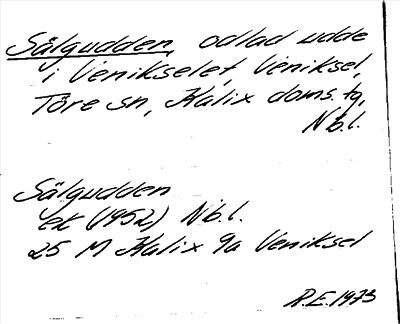 Sålgudden, odlad udde
i Venikselet, Veniksel,
Töre sn, Kalix doms. tg,
Nb.l.
Sålgudden
ek (1952) Nb.l.
25 M Kalix 9a Veniksel
R.E. 1973